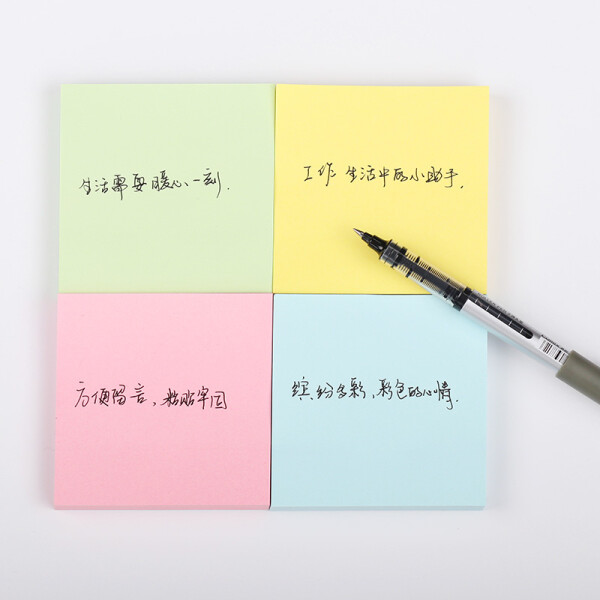 生活需要暖心一刻.
工作生活中的小助手.
方便留言,粘贴牢固
缤纷多彩,彩色的心情.